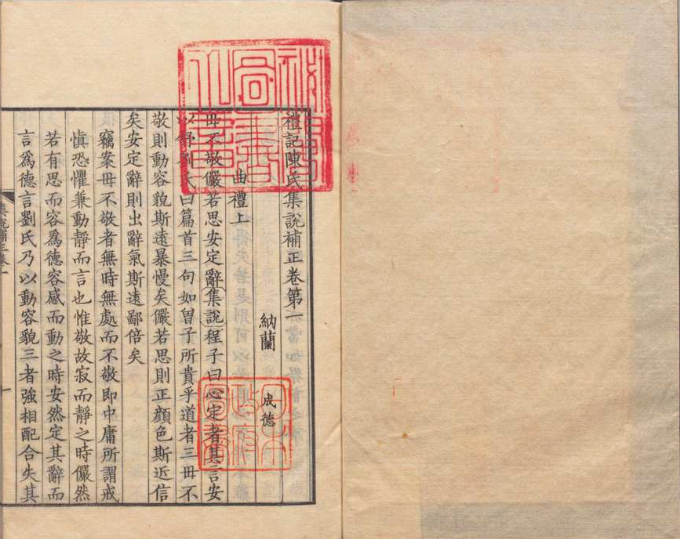 禮記陳氏集說補正卷第一
納蘭 成德
曲禮上
毋不敬儼若思安定辭集說程子曰心定者其言安
以舒劉氏曰篇首三句如曾子所貴乎道者三毋不
敬則動容貌斯遠暴慢矣儼若思則正顏色斯近信
矣安定辭則出辭氣斯遠鄙倍矣
竊案毋不敬者無時無處而不敬即中庸所謂戒
慎恐懼兼動靜而言也惟敬故寂而靜之時儼然
若有思而容為德容感而動之時安然定其辭而
言為德言劉氏乃以動容貌三者強相配合失其